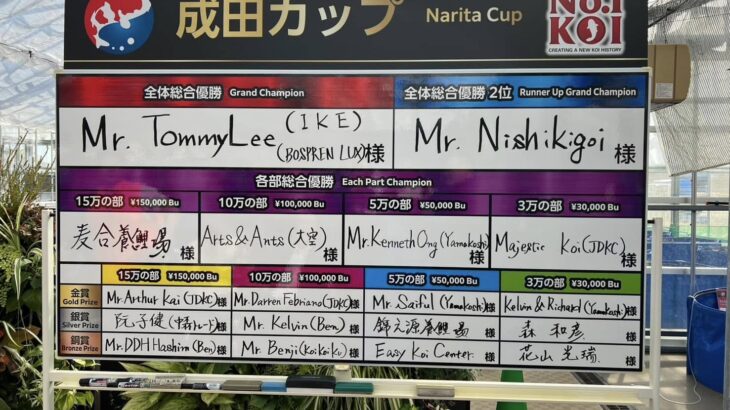 成田カップ Narita Cup
No.1 KOI
CREATING A NEW KOI HISTORY
全体総合優勝 Grand Champion
Mr. TommyLee (IKE) (BOSPREN LUX) 様
全体総合優勝 2位 Runner Up Grand Champion
Mr. Nishikigoi 様
各部総合優勝 Each Part Champion
15万の部 ¥150,000 Bu
10万の部 ¥100,000 Bu
5万の部 ¥50,000 Bu
3万の部 ¥30,000 Bu
麦合養鯉場 様
Arts & Ants (大空) 様
Mr. Kenneth Ong (Yamakoshi) 様
Majestic Koi (JDKC) 様
15万の部 ¥150,000 Bu
10万の部 ¥100,000 Bu
5万の部 ¥50,000 Bu
3万の部 ¥30,000 Bu
金賞 Gold Prize
Mr. Arthur Kai (JDKC) 様
Mr. Darren Febriano (JDKC) 様
Mr. Saiful (Yamakoshi) 様
Kelvin & Richard (Yamakoshi) 様
銀賞 Silver Prize
阮子健 (トレード) 様
Mr. Kelvin (Ben) 様
錦元源養鯉場 様
森 和彦 様
銅賞 Bronze Prize
Mr. DDH Hashim (Ben) 様
Mr. Benji (Koi Koi Ku) 様
Easy Koi Center. 様
花山 光瑞 様